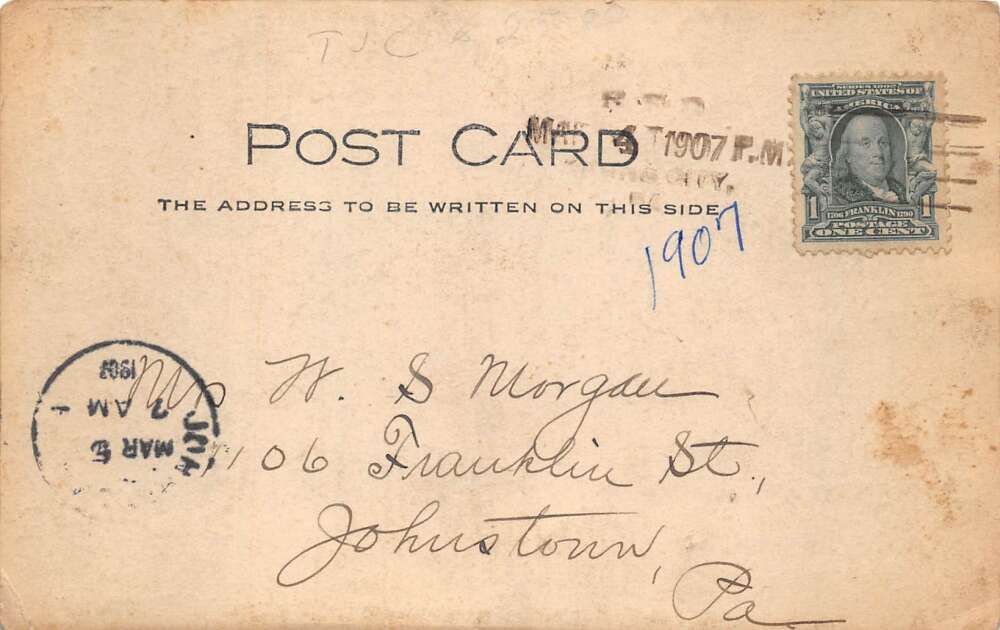 TJC
SERIES 1902
UNITED STATES OF
AMERICA
1 1706 FRANKLIN 1790 1
POSTAGE
ONE CENT
R.F.D.
MAR 4 1907 P.M
CITY,
POST CARD
THE ADDRESS TO BE WRITTEN ON THIS SIDE
1907
Mrs W. S Morgan
106 Franklin St.,
Johnstown,
Pa
MAR 5
7 AM
190